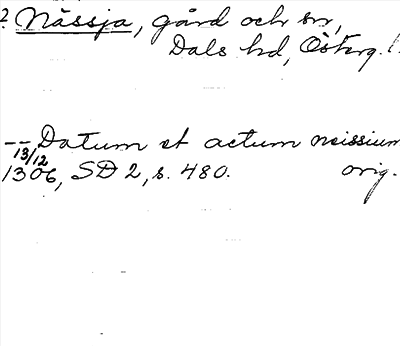 2. Nässja, gård och sn,
Dals hd, Österg. l.
-- Datum et actum neissium
13/12
1306, SD 2, s. 480. orig.